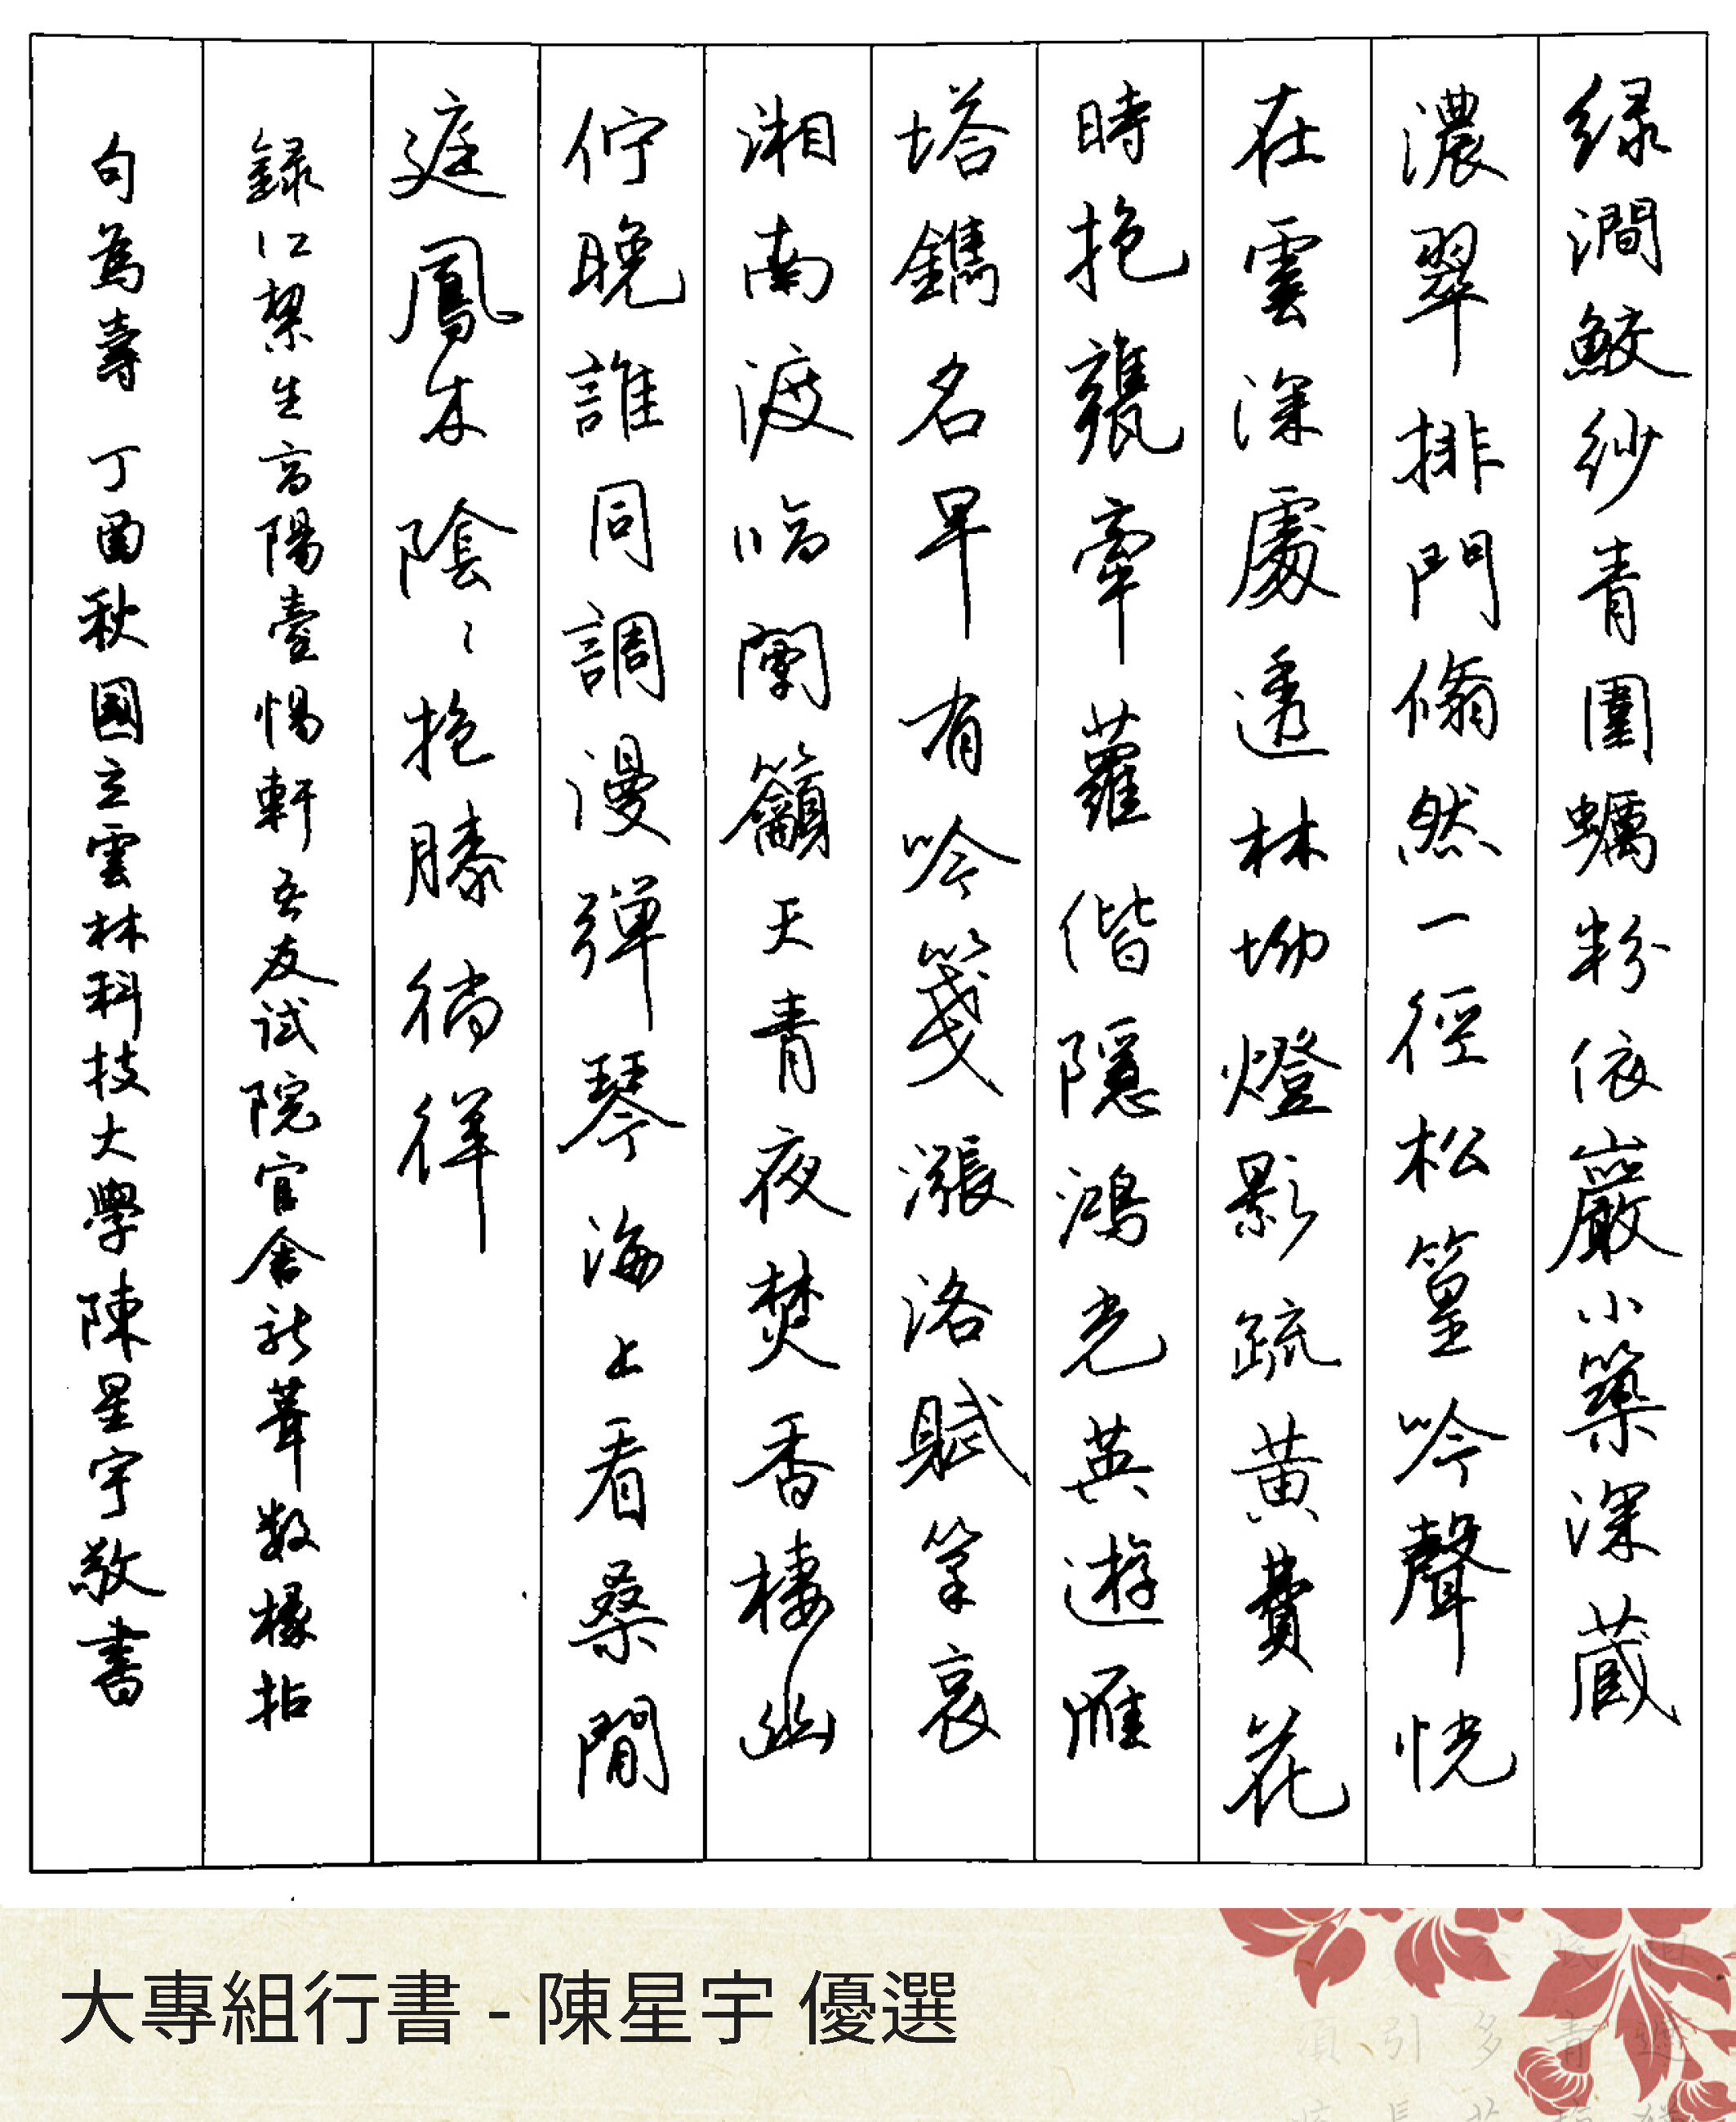 綠澗鮫紗青圍蠣粉依巖小築深藏
濃翠排門翛然一徑松篁吟聲恍
在雲深處透林坳燈影疏黃費花
時抱甕牽蘿偕隱鴻光英遊雁
塔鐫名早有吟箋漲洛賦筆哀
湘南渡臨闌籲天青夜焚香棲幽
佇晚誰同調漫彈琴海上看桑閒
庭鳳木陰〻抱膝徜徉
錄江絜生高陽臺惕軒吾友試院官舍新葺數椽拈
句為壽 丁酉秋國立雲林科技大學陳星宇敬書
大專組行書 - 陳星宇 優選